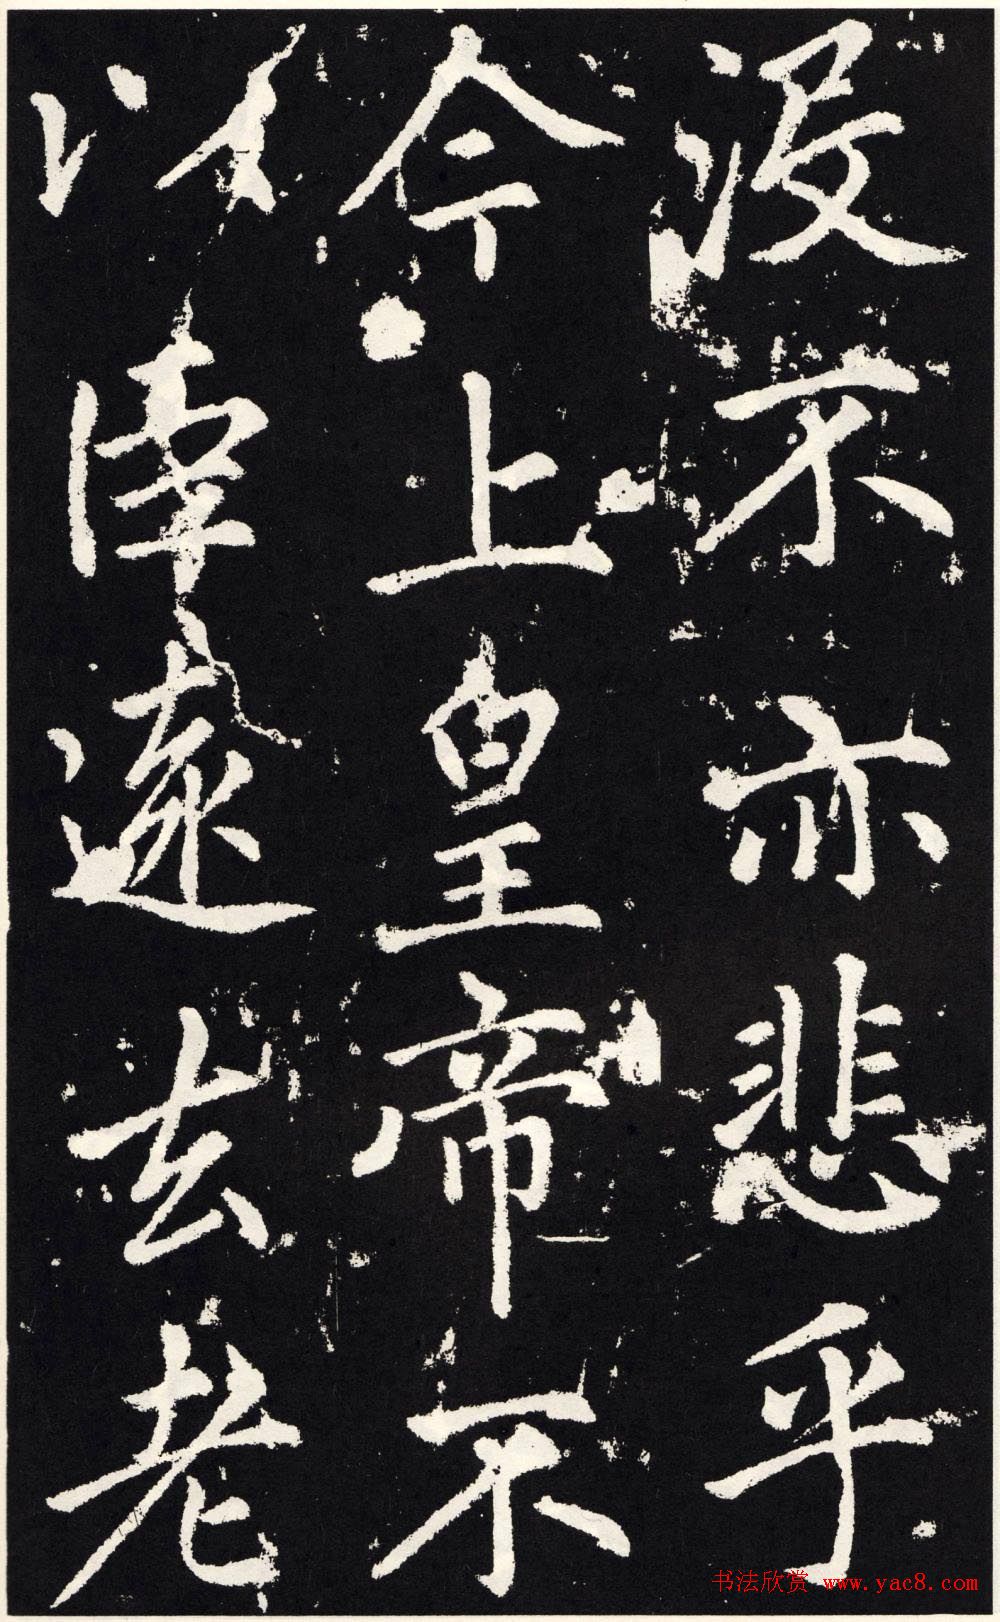 没不亦悲乎
今上皇帝不
以遠去老
书法欣赏 www.yac8.com